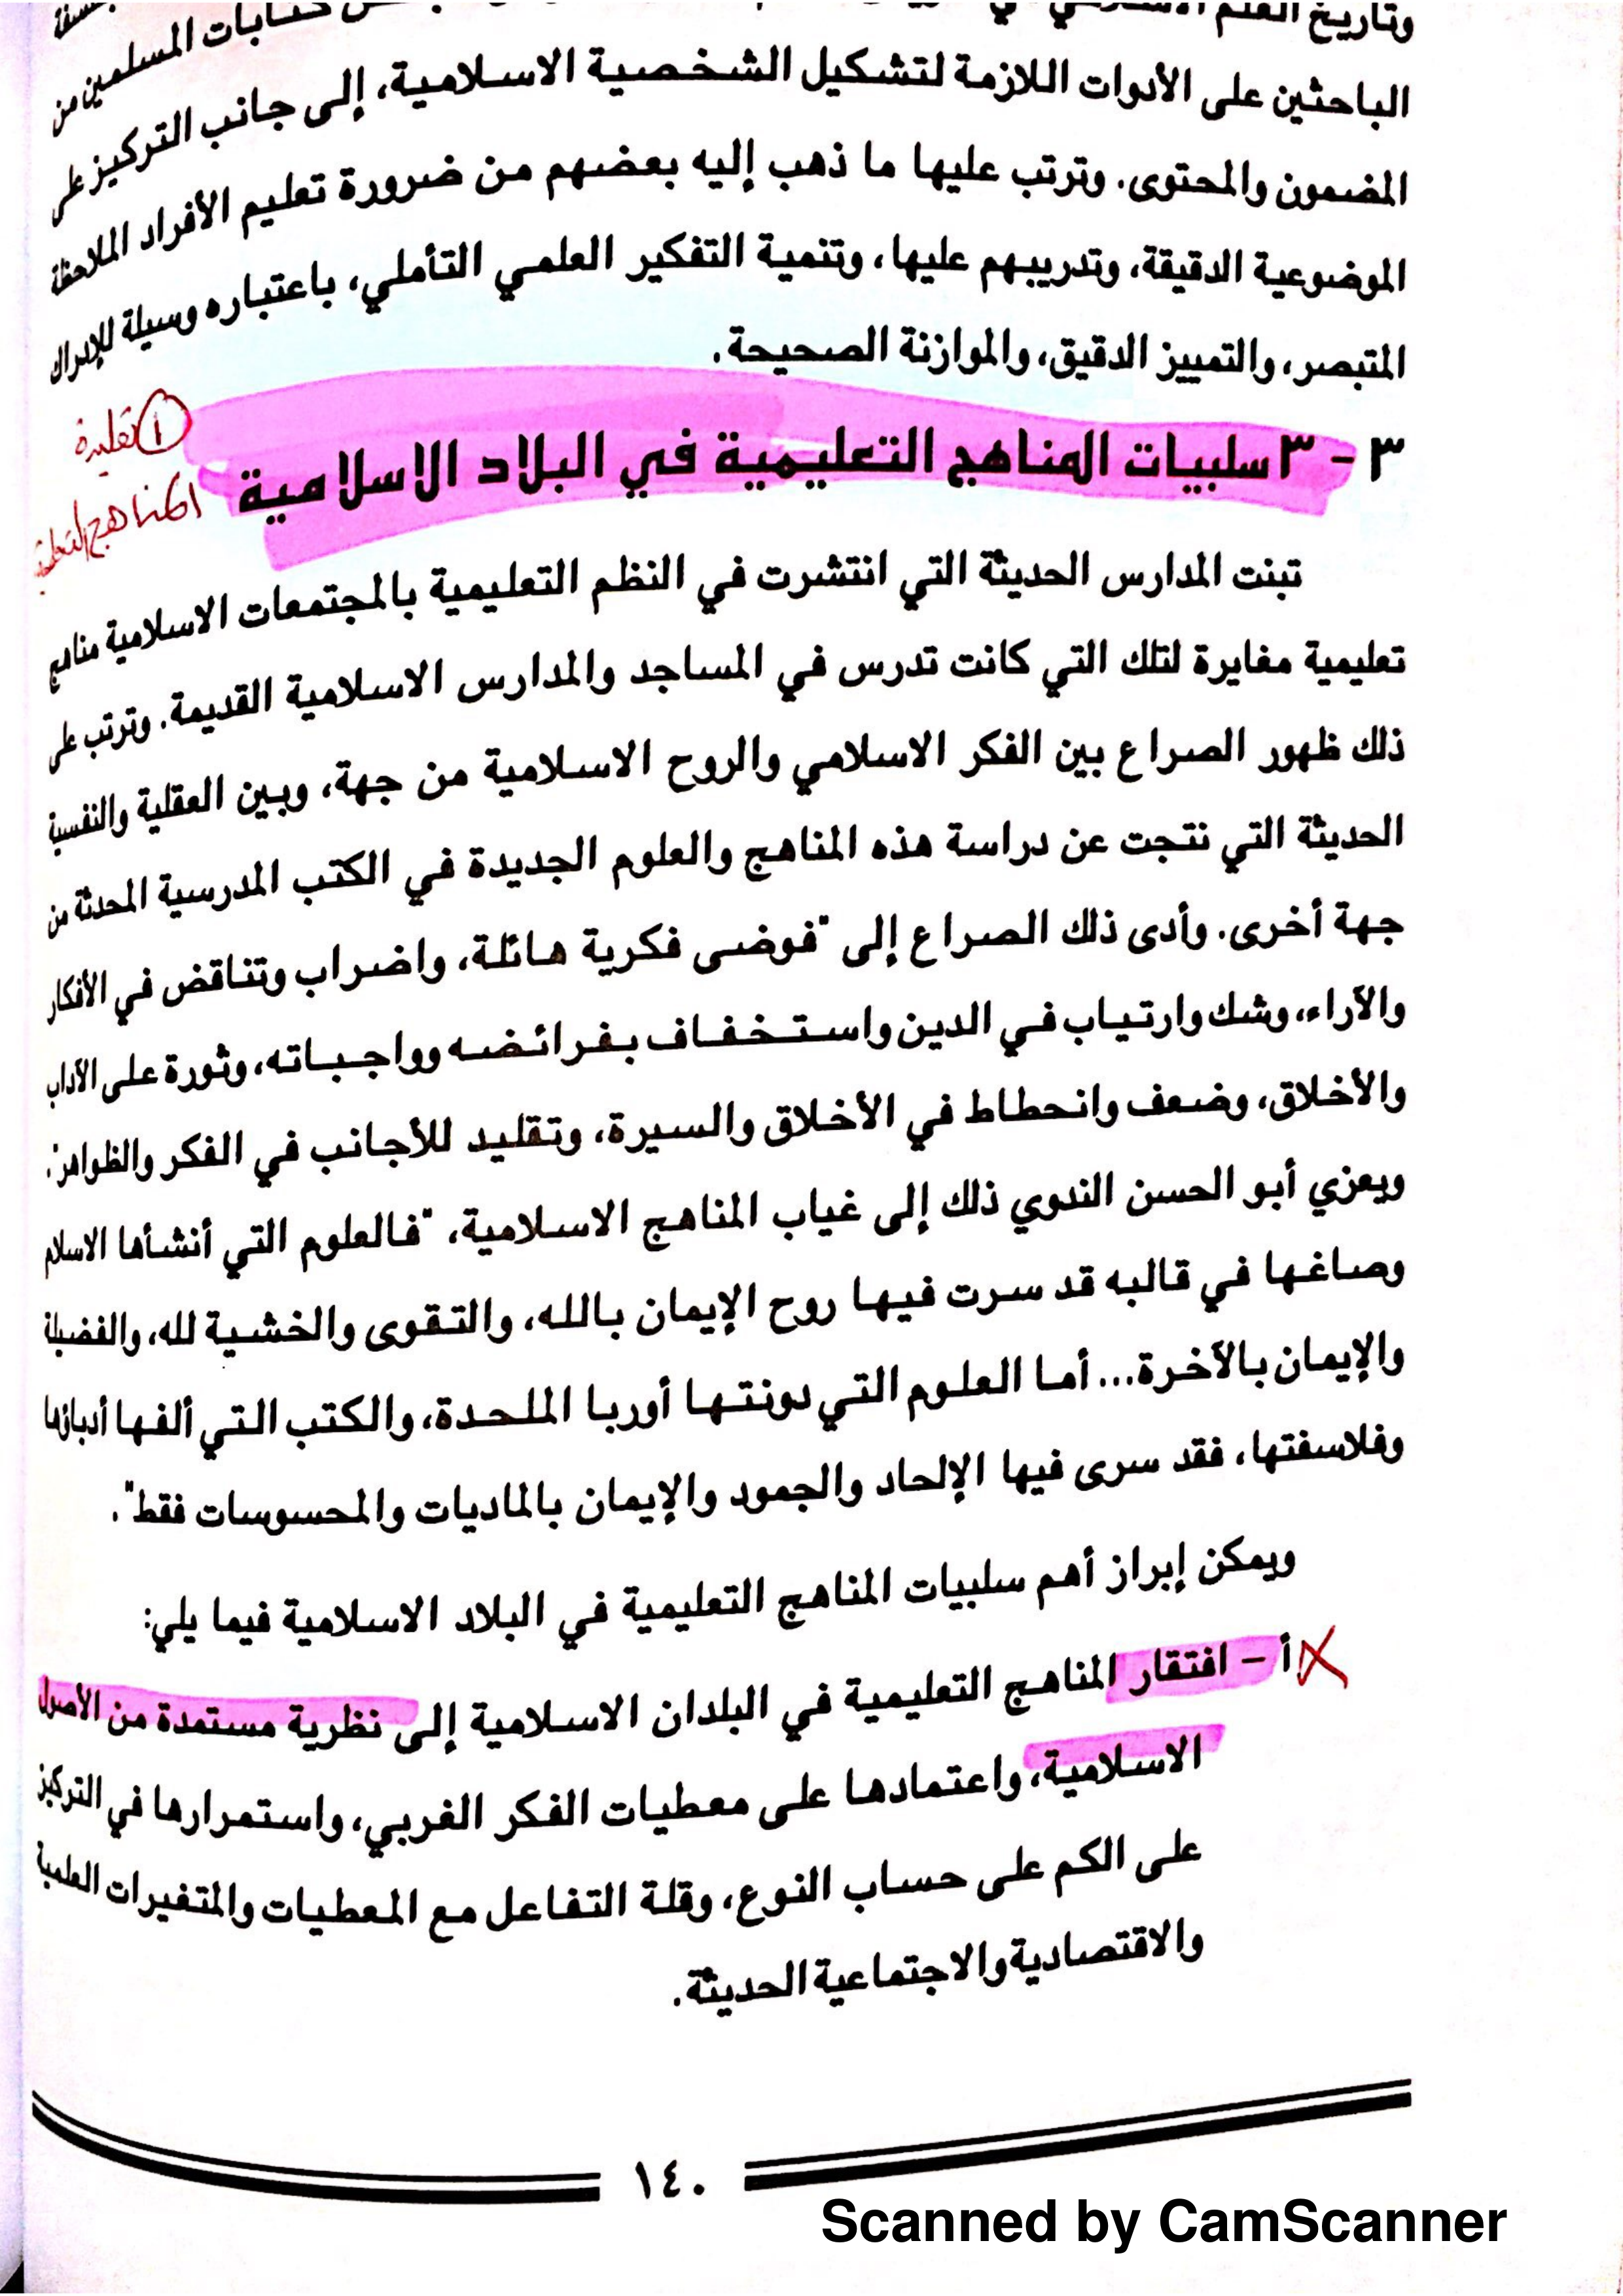 وتاريخ العلم
كتابات المسلمين من
الباحثين على الأدوات اللازمة لتشكيل الشخصية الاسلامية، إلى جانب التركيز على
المضمون والمحتوى. وترتب عليها ما ذهب إليه بعضهم من ضرورة تعليم الأفراد الملاحظة
الموضوعية الدقيقة، وتدريبهم عليها، وتنمية التفكير العلمي التأملي، باعتباره وسيلة للإدراك
المتبصر، والتمييز الدقيق، والموازنة الصحيحة.
٣ - ٣ سلبيات المناهج التعليمية في البلاد الاسلامية
① تقليدة
المناهج التعليمية
تبنت المدارس الحديثة التي انتشرت في النظم التعليمية بالمجتمعات الاسلامية مناهج
تعليمية مغايرة لتلك التي كانت تدرس في المساجد والمدارس الاسلامية القديمة. وترتب على
ذلك ظهور الصراع بين الفكر الاسلامي والروح الاسلامية من جهة، وبين العقلية والنفسية
الحديثة التي نتجت عن دراسة هذه المناهج والعلوم الجديدة في الكتب المدرسية المحدثة من
جهة أخرى. وأدى ذلك الصراع إلى "فوضى فكرية هائلة، واضراب وتناقض في الأفكار
والآراء، وشك وارتياب في الدين واستخفاف بفرائضه وواجباته، وثورة على الآداب
والأخلاق، وضعف وانحطاط في الأخلاق والسيرة، وتقليد للأجانب في الفكر والظواهر".
ويعزي أبو الحسن الندوي ذلك إلى غياب المناهج الاسلامية، "فالعلوم التي أنشأها الاسلام
وصاغها في قالبه قد سرت فيها روح الإيمان بالله، والتقوى والخشية لله، والفضيلة
والإيمان بالآخرة... أما العلوم التي دونتها أوربا الملحدة، والكتب التي ألفها أدباؤها
وفلاسفتها، فقد سرى فيها الإلحاد والجمود والإيمان بالماديات والمحسوسات فقط".
ويمكن إبراز أهم سلبيات المناهج التعليمية في البلاد الاسلامية فيما يلي:
أ - افتقار المناهج التعليمية في البلدان الاسلامية إلى نظرية مستمدة من الأصول
الاسلامية، واعتمادها على معطيات الفكر الغربي، واستمرارها في التركيز
على الكم على حساب النوع، وقلة التفاعل مع المعطيات والمتغيرات العلمية
والاقتصادية والاجتماعية الحديثة.
١٤٠
Scanned by CamScanner